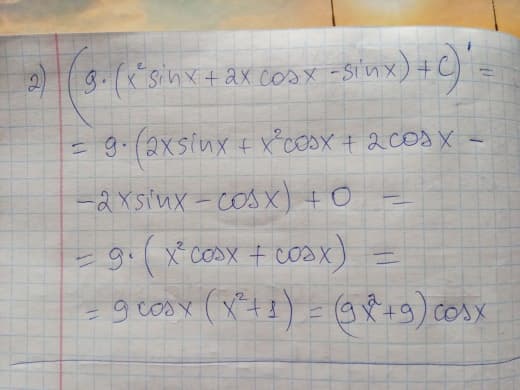 2) (9·(x²sinx + 2x cosx - sinx) + C)' =
= 9·(2xsinx + x²cosx + 2cosx -
-2xsinx - cosx) + 0 =
= 9·(x²cosx + cosx) =
= 9cosx (x²+1) = (9x²+9) cosx